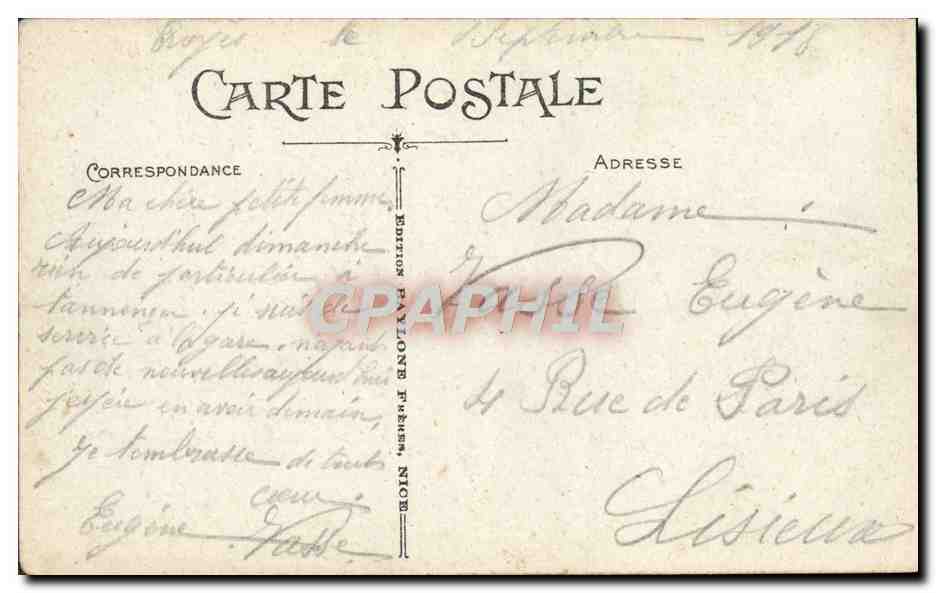 Troyes le Septembre 1918
CARTE POSTALE
CORRESPONDANCE
Ma chère petite femme
Aujourd'hui dimanche
rien de particulier à
t'annoncer, je suis de
service à la gare, n'ayant
pas de nouvelles aujourd'hui
j'espère en avoir demain,
Je t'embrasse de tout
cœur.
Eugène Vasse
EDITION RAYLONE FRÈRES, NICE
ADRESSE
Madame
Vasse Eugène
4 Rue de Paris
Lisieux
CPAPHIL